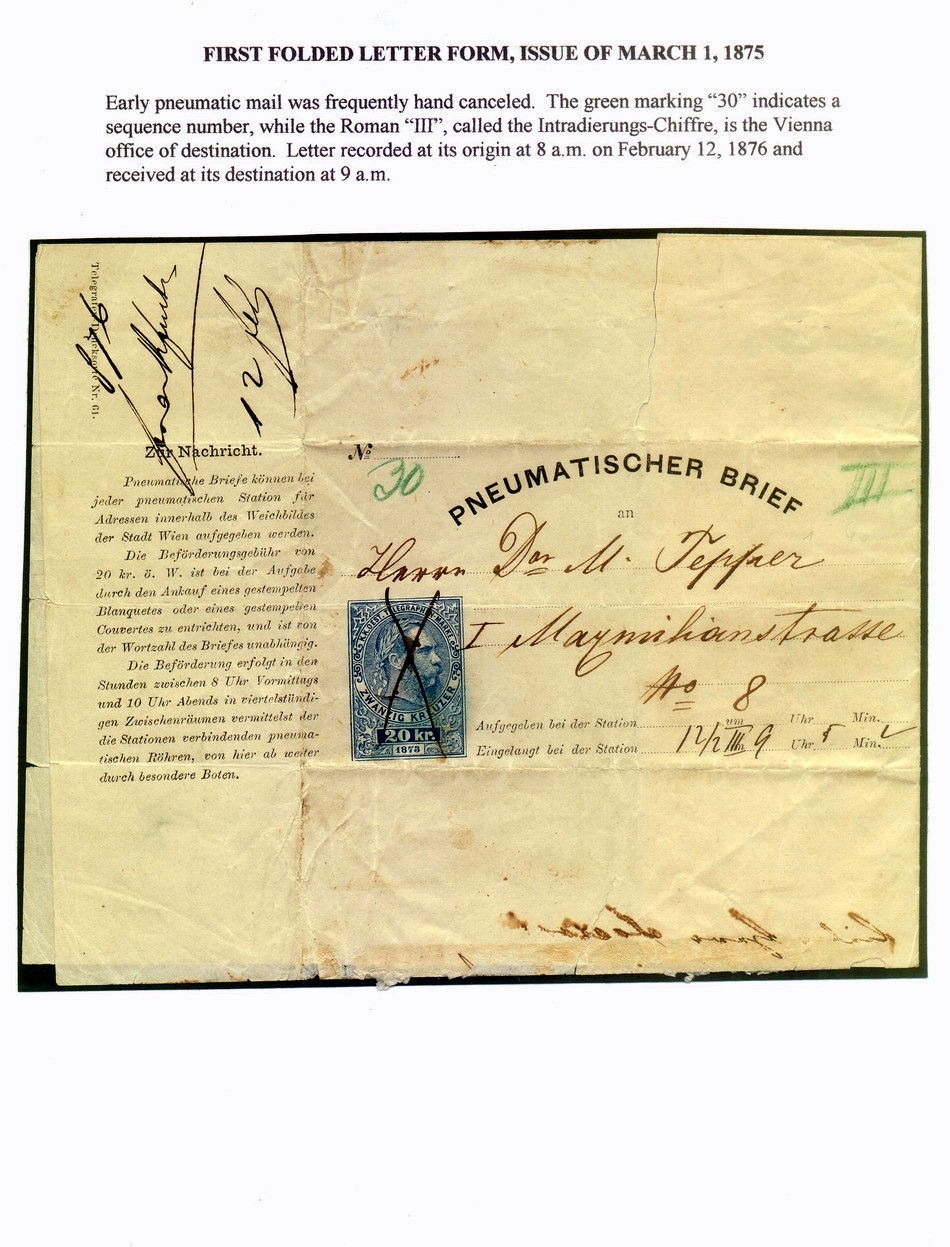 FIRST FOLDED LETTER FORM, ISSUE OF MARCH 1, 1875
Early pneumatic mail was frequently hand canceled. The green marking “30” indicates a
sequence number, while the Roman “III”, called the Intradierungs-Chiffre, is the Vienna
office of destination. Letter recorded at its origin at 8 a.m. on February 12, 1876 and
received at its destination at 9 a.m.
Nr. 61.
12
Zur Nachricht.
Pneumatische Briefe können bei
jeder pneumatischen Station für
Adressen innerhalb des Weichbildes
der Stadt Wien aufgegeben werden.
Die Beförderungsgebühr von
20 kr. ö. W. ist bei der Aufgabe
durch den Ankauf eines gestempelten
Blanquetes oder eines gestempelten
Couvertes zu entrichten, und ist von
der Wortzahl des Briefes unabhängig.
Die Beförderung erfolgt in den
Stunden zwischen 8 Uhr Vormittags
und 10 Uhr Abends in viertelstündi-
gen Zwischenräumen vermittelst der
die Stationen verbindenden pneuma-
tischen Röhren, von hier ab weiter
durch besondere Boten.
No
30
III
PNEUMATISCHER BRIEF
an
Herrn Dor M. Tepper
I Maxmilianstrasse
No 8
K.K. OEST. TELEGRAPHEN-MARKE
ZWANZIG KREUZER
20 kr.
1873
Aufgegeben bei der Station um Uhr Min.
Eingelangt bei der Station 12/2 III 9 Uhr 5 Min.